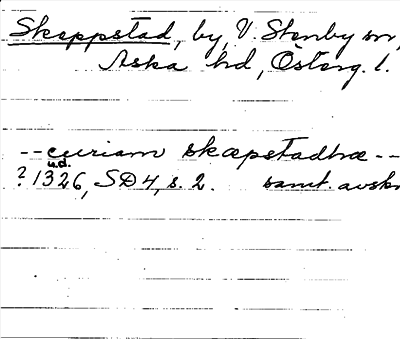 Skeppstad, by, V. Stenby sn,
Aska hd, Österg. l.
-- curiam skæpstadhæ --
u.d.
? 1326, SD 4, s. 2. samt. avskr